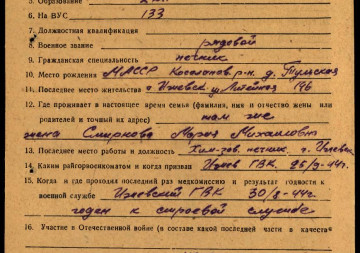 5. Образование
6. На ВУС 133
7. Должностная квалификация
8. Военное звание рядовой
9. Гражданская специальность печник
10. Место рождения МАССР р-н д. Тульская
11. Последнее место жительства г. Ижевск ул. 196
12. Где проживает в настоящее время семья (фамилия, имя и отчество жены или
родителей и точный их адрес) там же
жена Смирнова Мария Михайловн
13. Последнее место работы и должность печник, г. Ижевск
14. Каким райгорвоенкоматом и когда призван Ижев ГВК. 25/9-44г.
15. Когда и где проходил последний раз медкомиссию и результат годности к
военной службе Ижевский ГВК 30/8-44г.
годен к строевой службе
16. Участие в Отечественной войне (в составе какой последней части в качеств